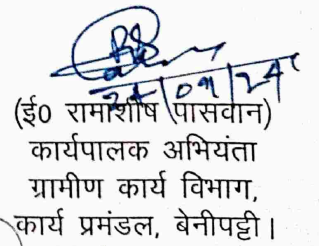 24/09/24
(ई0 रामाशीष पासवान)
कार्यपालक अभियंता
ग्रामीण कार्य विभाग,
कार्य प्रमंडल, बेनीपट्टी।